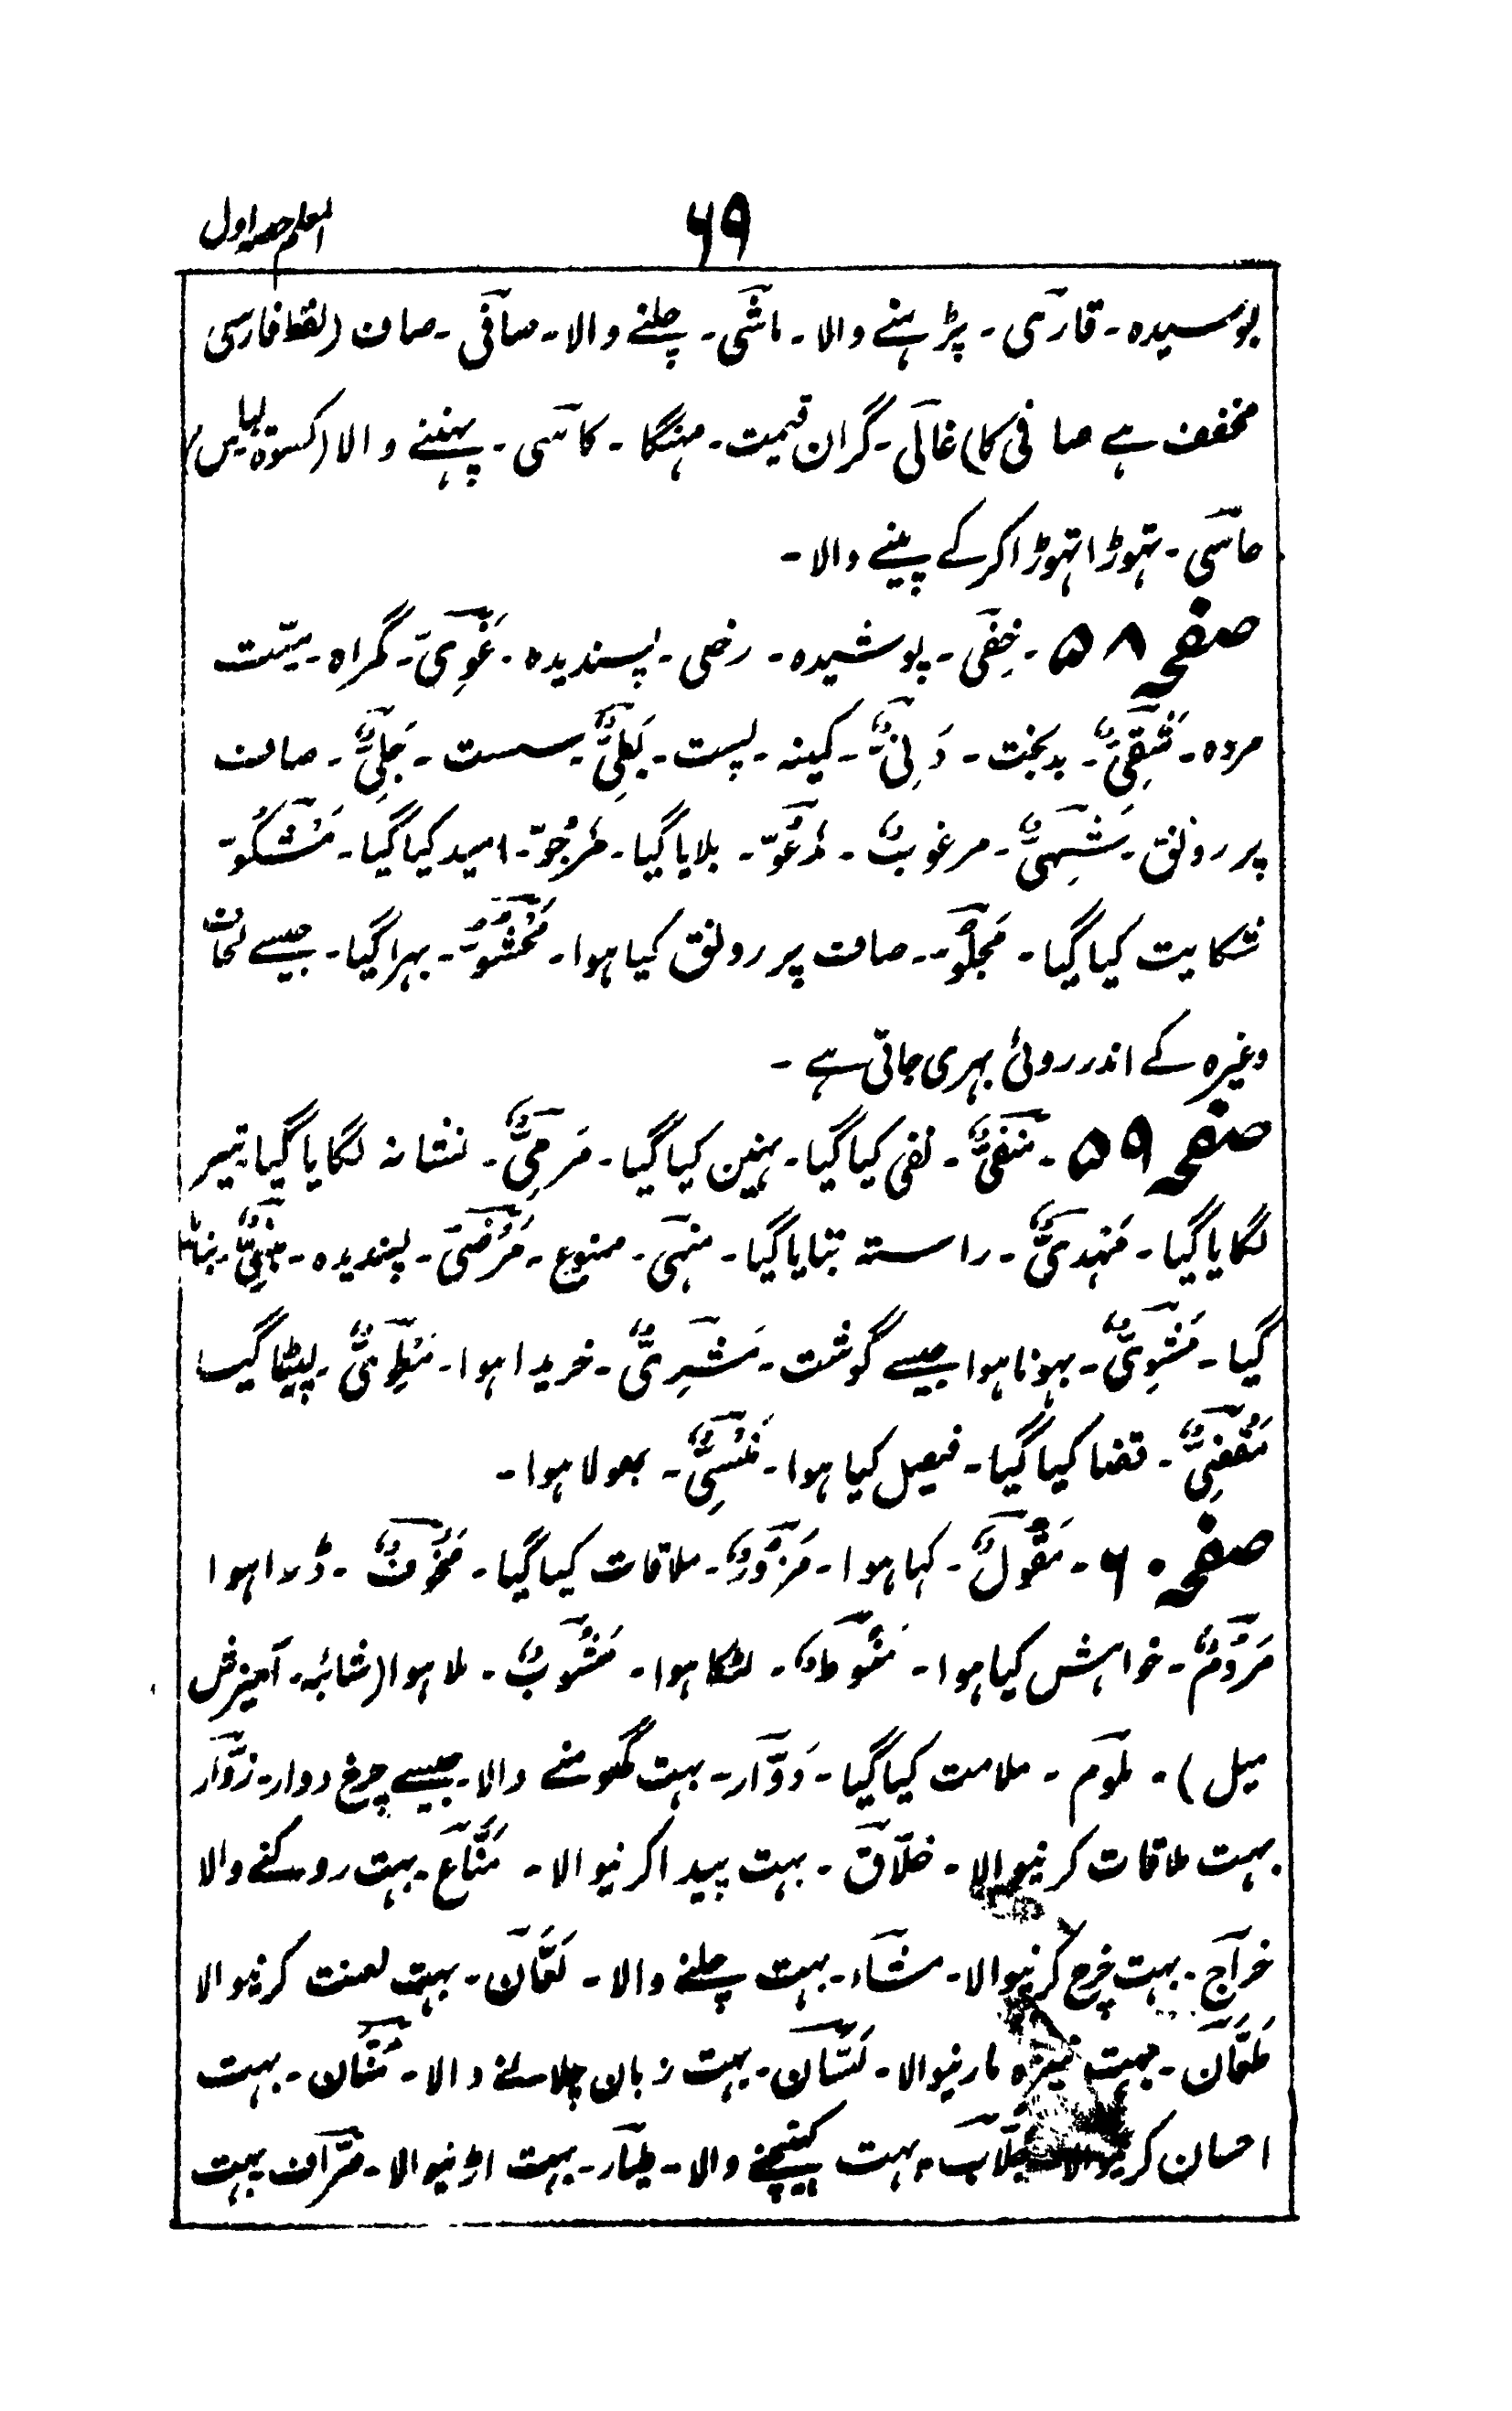 المعلم حصہ اول
٦٩
بوسیدہ۔ قارَی۔ پڑہنے والا۔ ماشی۔ چلنے والا۔ صافی۔ صاف (لفظ فارسی
مخفف ہے صافی کا) غالَی۔ گران قیمت۔ مہنگا۔ کاسَی۔ پہننے والا (کسوۃ لباس)
حاسَی۔ تہوڑا تہوڑا کرکے پینے والا۔
صفحہ ۵۸۔ خِفَی۔ پوشیدہ۔ رضی۔ پسندیدہ۔ غَوِیّ۔ گمراہ۔ میّت
مردہ۔ شَقِیٌّ۔ بدبخت۔ دَنِیٌّ۔ کمینہ۔ پست۔ بَطِیٌّ۔ سست۔ جَلِیٌّ۔ صاف
پر رونق۔ شَہِیٌّ۔ مرغوبٌ۔ مَدعُوّ۔ بلایا گیا۔ مَرجُوّ۔ امید کیا گیا۔ مَشْکُوّ
شکایت کیا گیا۔ مَجْلُوّ۔ صاف پر رونق کیا ہوا۔ مَحْشُوٌّ۔ بہرا گیا۔ جیسے لحاف
وغیرہ کے اندر روئی بہری جاتی ہے۔
صفحہ ۵۹۔ مَنفِیٌّ۔ نفی کیا گیا۔ نہین کیا گیا۔ مَرمِیٌّ۔ نشانہ لگایا گیا تیر
لگایا گیا۔ مَہْدِیٌّ۔ راستہ بتایا گیا۔ منہی۔ ممنوع۔ مَرْضَی۔ پسندیدہ۔ مَبْنِیٌّ۔ بنایا
گیا۔ مَشْوِیٌّ۔ بہونا ہوا جیسے گوشت۔ مَشْرِیٌّ۔ خریدا ہوا۔ مَطْوِیٌّ۔ لپیٹا گیا
مَقْضِیٌّ۔ قضا کیا گیا۔ فیصل کیا ہوا۔ مَنْسِیٌّ۔ بھولا ہوا۔
صفحہ ۶۰۔ مَقُولٌ۔ کہا ہوا۔ مَزُورٌ۔ ملاقات کیا گیا۔ مَخُوفٌ۔ ڈرا ہوا
مَرُومٌ۔ خواہش کیا ہوا۔ مَنُوطٌ۔ لٹکا ہوا۔ مَشُوبٌ۔ ملا ہوا (شائبہ۔ آمیزش
میل)۔ ملوم۔ ملامت کیا گیا۔ دَوَّار۔ بہت گھومنے والا۔ جیسے چرخ دوار۔ زوَّار
بہت ملاقات کرنیوالا۔ خلّاق۔ بہت پیدا کرنیوالا۔ مَنَّاع۔ بہت روکنے والا
خراج۔ بہت خرچ کرنیوالا۔ مشّاء۔ بہت چلنے والا۔ لَعَّان۔ بہت لعنت کرنیوالا
طَعَّان۔ بہت نیزہ مارنیوالا۔ لَسَّان۔ بہت زبان چلانے والا۔ مَنَّان۔ بہت
احسان کرنیوالا۔ جلّاب۔ بہت کہینچنے والا۔ طیّار۔ بہت اڑنیوالا۔ صَرَّاف بہت